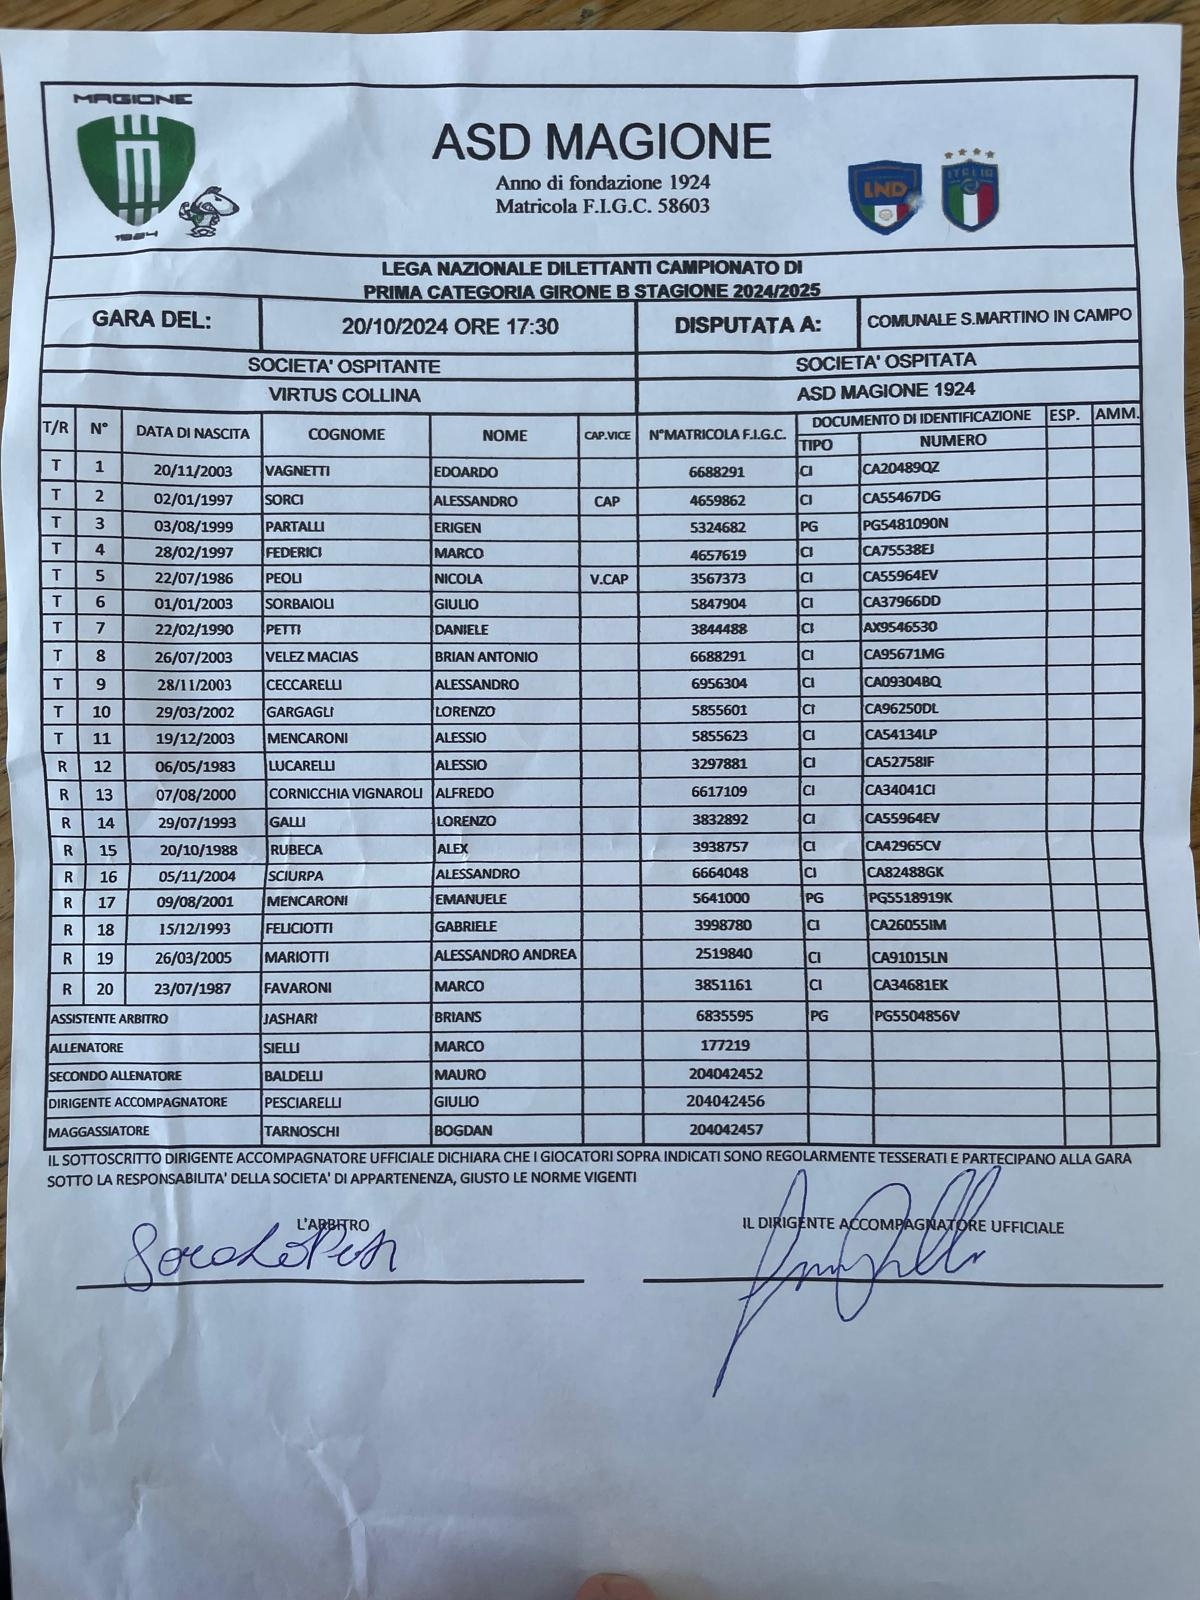 MAGIONE
1924
ASD MAGIONE
Anno di fondazione 1924
Matricola F.I.G.C. 58603
LND
ITALIA
LEGA NAZIONALE DILETTANTI CAMPIONATO DI
PRIMA CATEGORIA GIRONE B STAGIONE 2024/2025
GARA DEL: 20/10/2024 ORE 17:30 DISPUTATA A: COMUNALE S.MARTINO IN CAMPO
SOCIETA' OSPITANTE SOCIETA' OSPITATA
VIRTUS COLLINA ASD MAGIONE 1924
T/R N° DATA DI NASCITA COGNOME NOME CAP.VICE N°MATRICOLA F.I.G.C. DOCUMENTO DI IDENTIFICAZIONE ESP. AMM.
TIPO NUMERO
T 1 20/11/2003 VAGNETTI EDOARDO 6688291 CI CA20489QZ
T 2 02/01/1997 SORCI ALESSANDRO CAP 4659862 CI CA55467DG
T 3 03/08/1999 PARTALLI ERIGEN 5324682 PG PG5481090N
T 4 28/02/1997 FEDERICI MARCO 4657619 CI CA75538EJ
T 5 22/07/1986 PEOLI NICOLA V.CAP 3567373 CI CA55964EV
T 6 01/01/2003 SORBAIOLI GIULIO 5847904 CI CA37966DD
T 7 22/02/1990 PETTI DANIELE 3844488 CI AX9546530
T 8 26/07/2003 VELEZ MACIAS BRIAN ANTONIO 6688291 CI CA95671MG
T 9 28/11/2003 CECCARELLI ALESSANDRO 6956304 CI CA09304BQ
T 10 29/03/2002 GARGAGLI LORENZO 5855601 CI CA96250DL
T 11 19/12/2003 MENCARONI ALESSIO 5855623 CI CA54134LP
R 12 06/05/1983 LUCARELLI ALESSIO 3297881 CI CA52758IF
R 13 07/08/2000 CORNICCHIA VIGNAROLI ALFREDO 6617109 CI CA34041CI
R 14 29/07/1993 GALLI LORENZO 3832892 CI CA55964EV
R 15 20/10/1988 RUBECA ALEX 3938757 CI CA42965CV
R 16 05/11/2004 SCIURPA ALESSANDRO 6664048 CI CA82488GK
R 17 09/08/2001 MENCARONI EMANUELE 5641000 PG PG5518919K
R 18 15/12/1993 FELICIOTTI GABRIELE 3998780 CI CA26055IM
R 19 26/03/2005 MARIOTTI ALESSANDRO ANDREA 2519840 CI CA91015LN
R 20 23/07/1987 FAVARONI MARCO 3851161 CI CA34681EK
ASSISTENTE ARBITRO JASHARI BRIANS 6835595 PG PG5504856V
ALLENATORE SIELLI MARCO 177219
SECONDO ALLENATORE BALDELLI MAURO 204042452
DIRIGENTE ACCOMPAGNATORE PESCIARELLI GIULIO 204042456
MAGGASSIATORE TARNOSCHI BOGDAN 204042457
IL SOTTOSCRITTO DIRIGENTE ACCOMPAGNATORE UFFICIALE DICHIARA CHE I GIOCATORI SOPRA INDICATI SONO REGOLARMENTE TESSERATI E PARTECIPANO ALLA GARA
SOTTO LA RESPONSABILITA' DELLA SOCIETA' DI APPARTENENZA, GIUSTO LE NORME VIGENTI
L'ARBITRO IL DIRIGENTE ACCOMPAGNATORE UFFICIALE